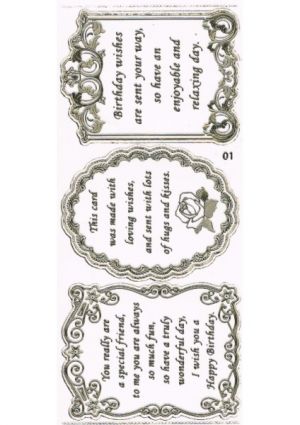 Birthday wishes
are sent your way,
so have an
enjoyable and
relaxing day.
01
This card
was made with
loving wishes,
and sent with lots
of hugs and kisses.
You really are
a special friend,
to me you are always
so much fun,
so have a truly
wonderful day,
I wish you a
Happy Birthday.